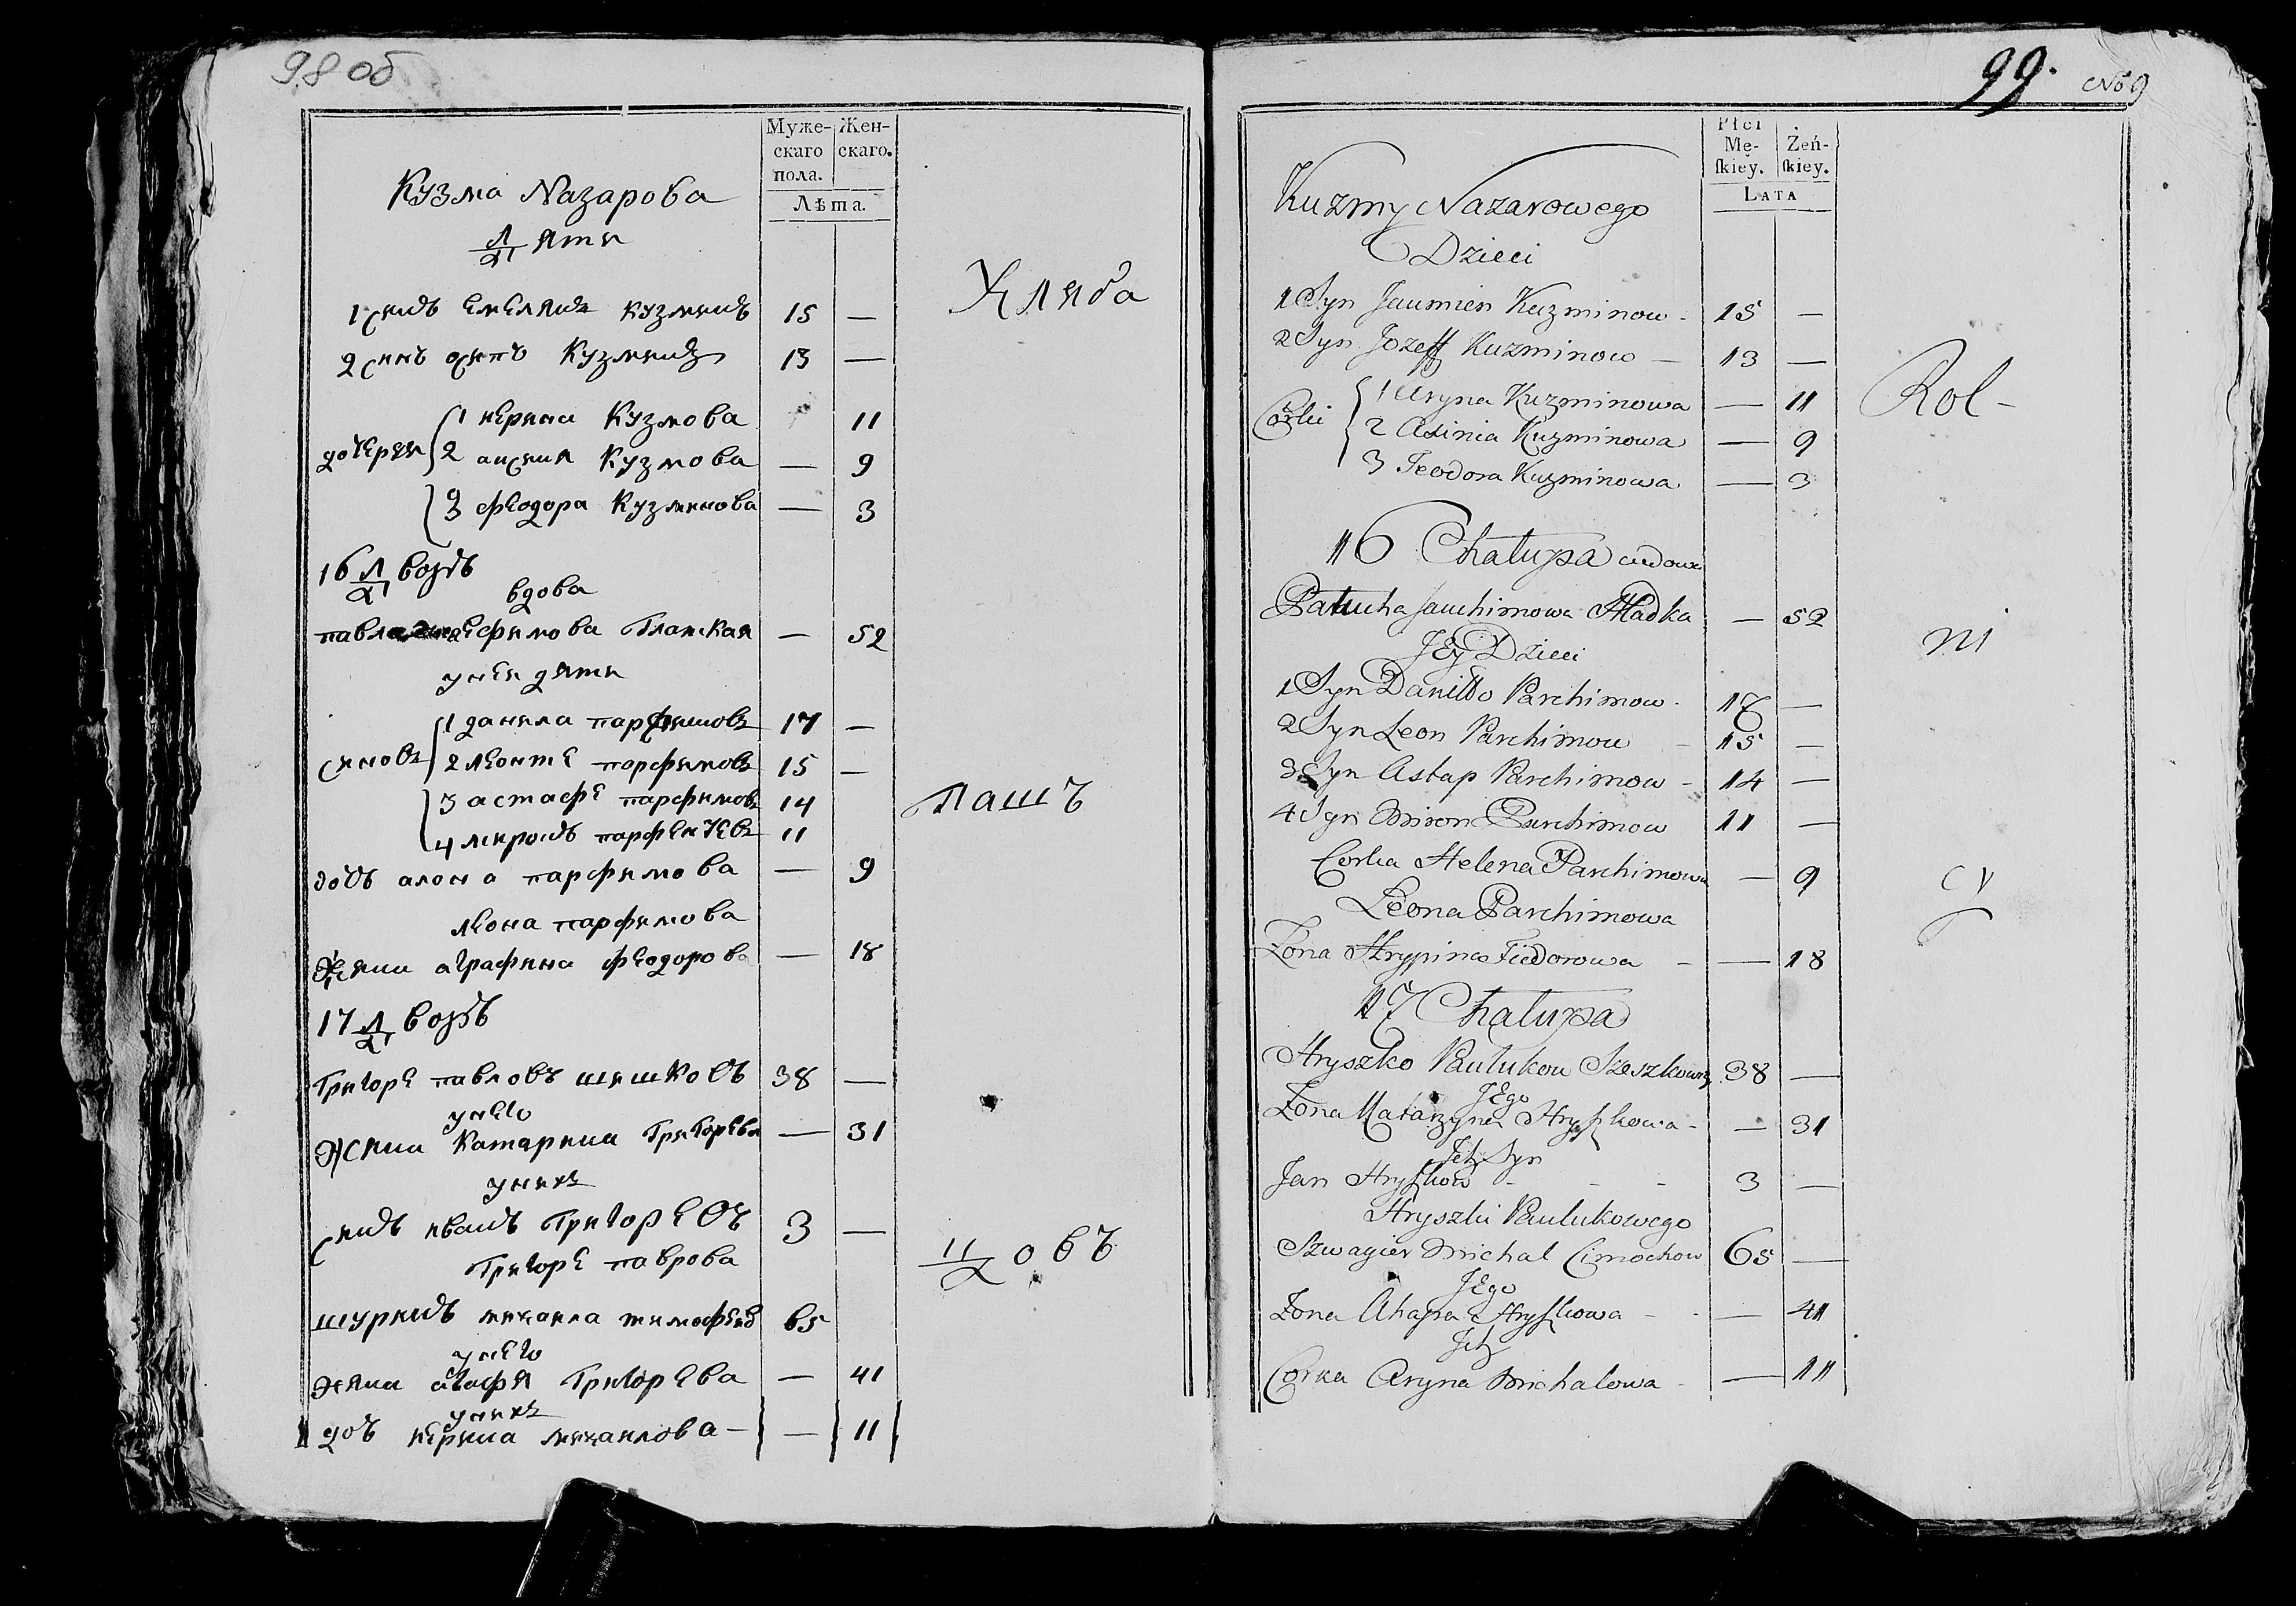 98 об
Муже- Жен-
скаго скаго.
пола.
Лѣта.
Кузма Назарова
Дяти
1 синъ Емелянъ Кузминъ 15 —
Хлиба
2 синъ осипъ Кузминъ 13 —
1 иерина Кузмова 11
дочерки 2 аксиня Кузмова — 9
3 феодора Кузминова — 3
16 Дворъ
вдова
Ефимова Гладкая — 52
унеи дяти
1 данила парфимовъ 17 —
синовъ 2 леонте парфимовъ 15 —
3 астафе парфимовъ 14
пашъ
4 миронъ парфенчевъ 11
дочъ алона парфимова — 9
леона парфимова
жина аграфина феодорова — 18
17 Дворъ
григоре павловъ шишковъ 38 —
унего
жина Катарина григорева — 31
унихъ
синъ иванъ григоревъ 3 —
цовъ
григоре паврова
шуринъ михаила тимофеев 65
унего
жина агафя григорева — 41
унихъ
дочъ иерина михаилова — — 11
99. №9
Płci
Mę- Żeń-
ſkiey. ſkiey.
LATA
Kuzmy Nazarowego
Dzieci
1 Syn Jaumien Kuzminow - 15 —
2 Syn Jozeff Kuzminow — 13 —
Rol-
1 Aryna Kuzminowa — 11
Corki 2 Axinia Kuzminowa — 9
3 Teodora Kuzminowa — 3
16 Chałupa wdowa
Jauchimowa Hładka — 52
ni
JEy Dzieci
1 Syn Daniłło Parchimow - 17 —
2 Syn Leon Parchimow - 15 —
3 Syn Astap Parchimow - 14 —
4 Syn Miron Parchimow 11 —
Corka Helena Parchimowa — 9
cy
Leona Parchimowa
Zona Hrypina Fiedorowa - — 18
17 Chałupa
Hryszko Paulukow Szeszkowy 38 —
JEgo
Zona Katarzyna Hryſzkowa - — 31
Jch Syn
Jan Hryſzkow - - - 3 —
Hryszki Paulukowego
Szwagier Michal Cimochow 65 —
JEgo
Zona Ahapa Hryſzkowa - — 41
Jch
Corka Aryna Michalowa - — 11